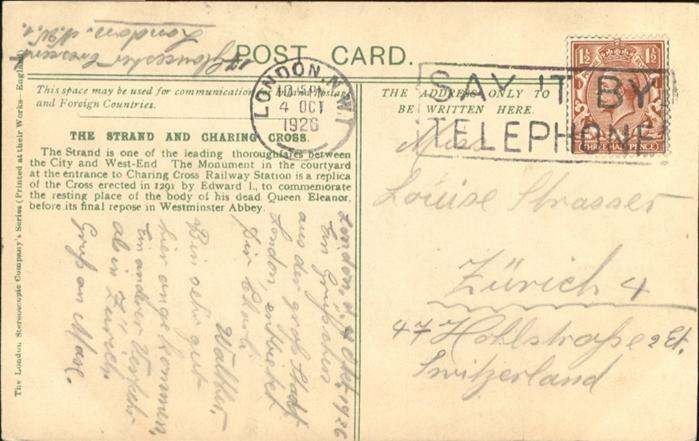 17 Gloucester Crescent
London. N.W.1.
POST CARD.
This space may be used for communication
and Foreign Countries.
THE ADDRESS ONLY TO
BE WRITTEN HERE.
LONDON. N.W.1
4 OCT
1926
SAY IT BY
TELEPHONE
1½ 1½
THREE HALF PENCE
THE STRAND AND CHARING CROSS.
The Strand is one of the leading thoroughfares between
the City and West-End The Monument in the courtyard
at the entrance to Charing Cross Railway Station is a replica
of the Cross erected in 1291 by Edward I., to commemorate
the resting place of the body of his dead Queen Eleanor,
before its final repose in Westminster Abbey.
London, d. 4 Okt. 1926
Ein Grüßchen
aus der groß Stadt
London, entbietet
Dir
Walther
Bin sehr gut
hier angekommen,
Ein anderer Verkehr
als in Zürich.
Gruß an Mase.
Miss
Louise Strasser
Zürich 4
47 Hohlstraße 2 Et.
Switzerland
The London Stereoscopic Company's Series (Printed at their Works—England